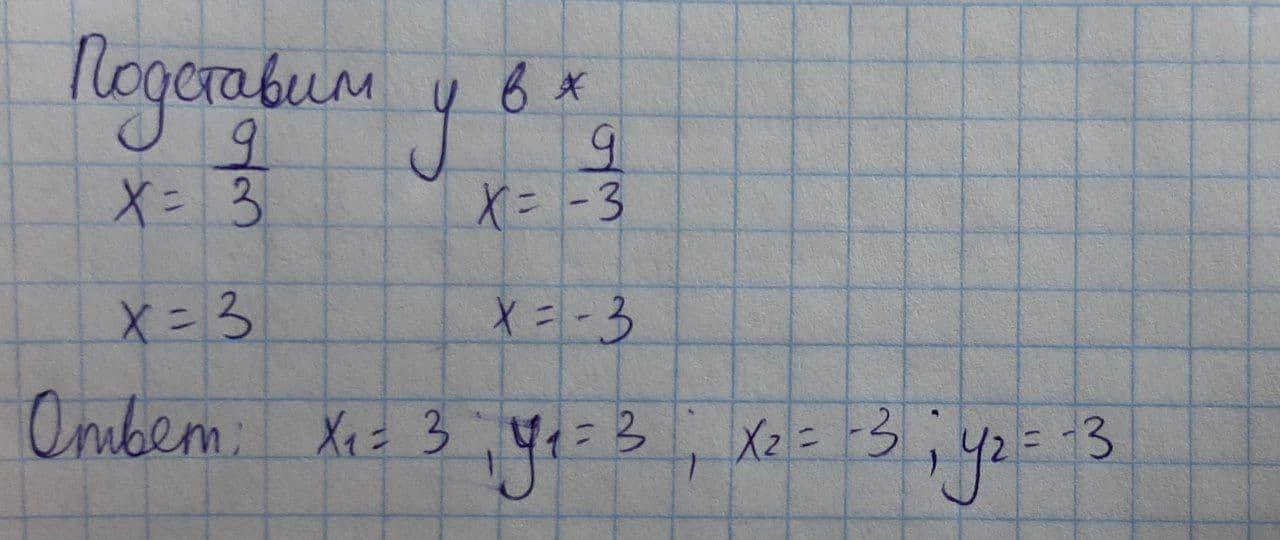 Подставим y в x
x = 9/3 x = 9/-3
x = 3 x = -3
Ответ: x₁ = 3 ; y₁ = 3 ; x₂ = -3 ; y₂ = -3